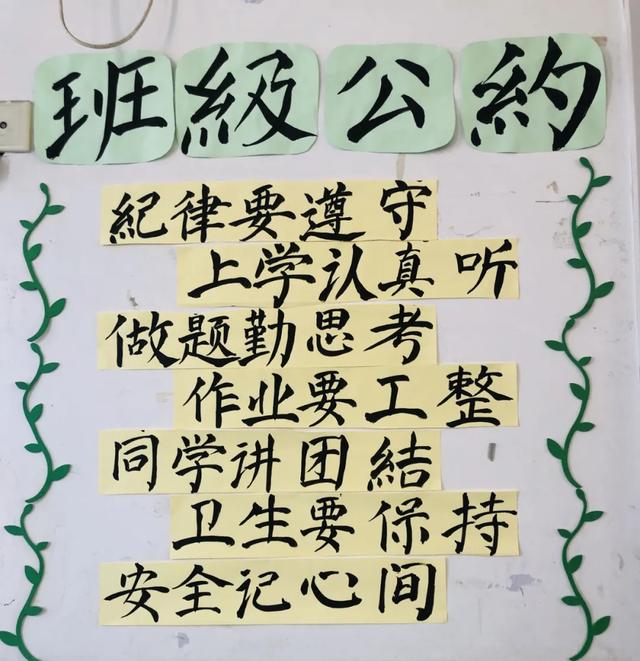 班級公約
紀律要遵守
上学认真听
做题勤思考
作业要工整
同学讲团結
卫生要保持
安全记心间